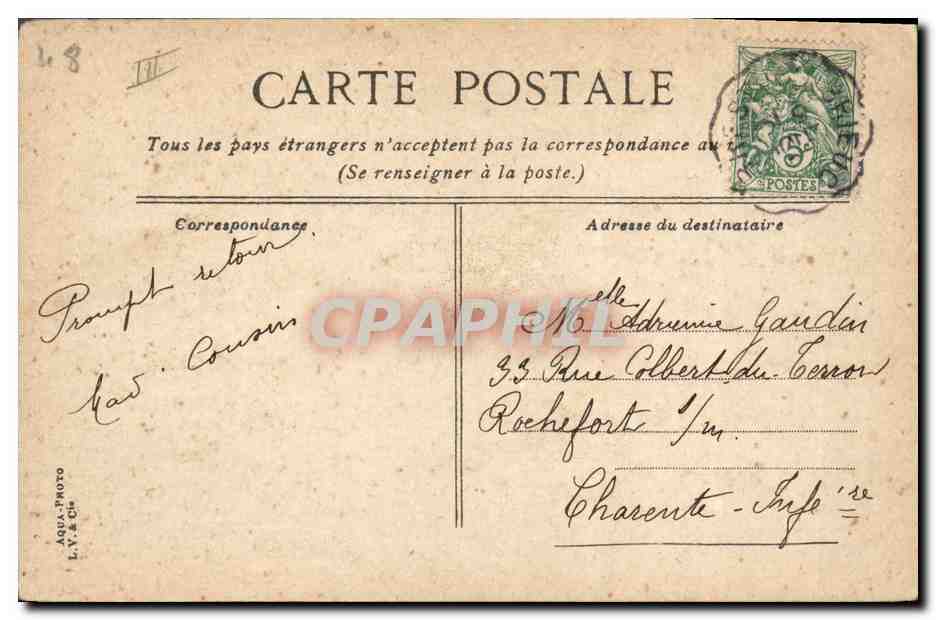 48
III
CARTE POSTALE
Tous les pays étrangers n'acceptent pas la correspondance au
(Se renseigner à la poste.)
BRIEUC
5
POSTES
Correspondance
Adresse du destinataire
Prompt retour.
Cousin
CPAPHIL
Melle Adrienne Gaudin
33 Rue Colbert-du-Terron
Rochefort s/m.
Charente-Infére
AQUA-PHOTO
L.V. & Cie